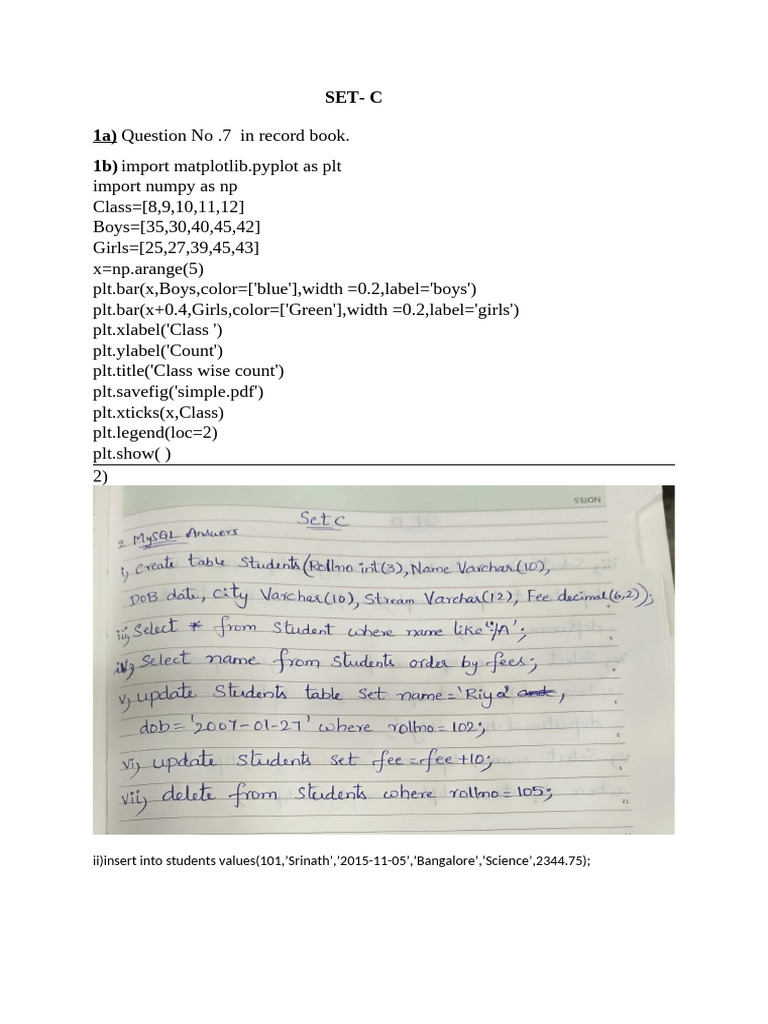 SET- C
1a) Question No .7  in record book.
1b) import matplotlib.pyplot as plt
import numpy as np
Class=[8,9,10,11,12]
Boys=[35,30,40,45,42]
Girls=[25,27,39,45,43]
x=np.arange(5)
plt.bar(x,Boys,color=['blue'],width =0.2,label='boys')
plt.bar(x+0.4,Girls,color=['Green'],width =0.2,label='girls')
plt.xlabel('Class ')
plt.ylabel('Count')
plt.title('Class wise count')
plt.savefig('simple.pdf')
plt.xticks(x,Class)
plt.legend(loc=2)
plt.show( )
2)
NOTES
Set C
2 MySQL Answers
i) Create table Students(Rollno int(3), Name Varchar(10),
DOB date, City Varchar(10), Stream Varchar(12), Fee decimal(6,2));
iii) Select * from Student where name like '%A';
iv) Select name from Students order by fees;
v) update Students table set name='Riya' and,
dob='2007-01-27' where rollno=102;
vi) update Students set fee=fee+10;
vii) delete from Students where rollno=105;
ii)insert into students values(101,’Srinath’,’2015-11-05’,’Bangalore’,’Science’,2344.75);